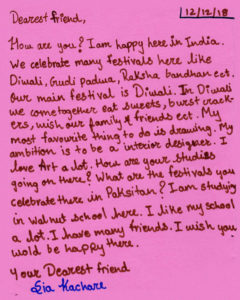 Dearest friend,
12/12/18
How are you? I am happy here in India.
We celebrate many festivals here like
Diwali, Gudi padwa, Raksha bandhan ect.
Our main festival is Diwali. In Diwali
we come together eat sweets, burst crack-
ers, wish our family & friends ect. My
most favourite thing to do is drawing. My
ambition is to be a interior designer. I
love Art a lot. How are your studies
going on there? What are the festivals you
celebrate there in Paksitan? I am studying
in walnut school here. I like my school
a lot. I have many friends. I wish you
wold be happy there.
Your Dearest friend
Lia Kachare